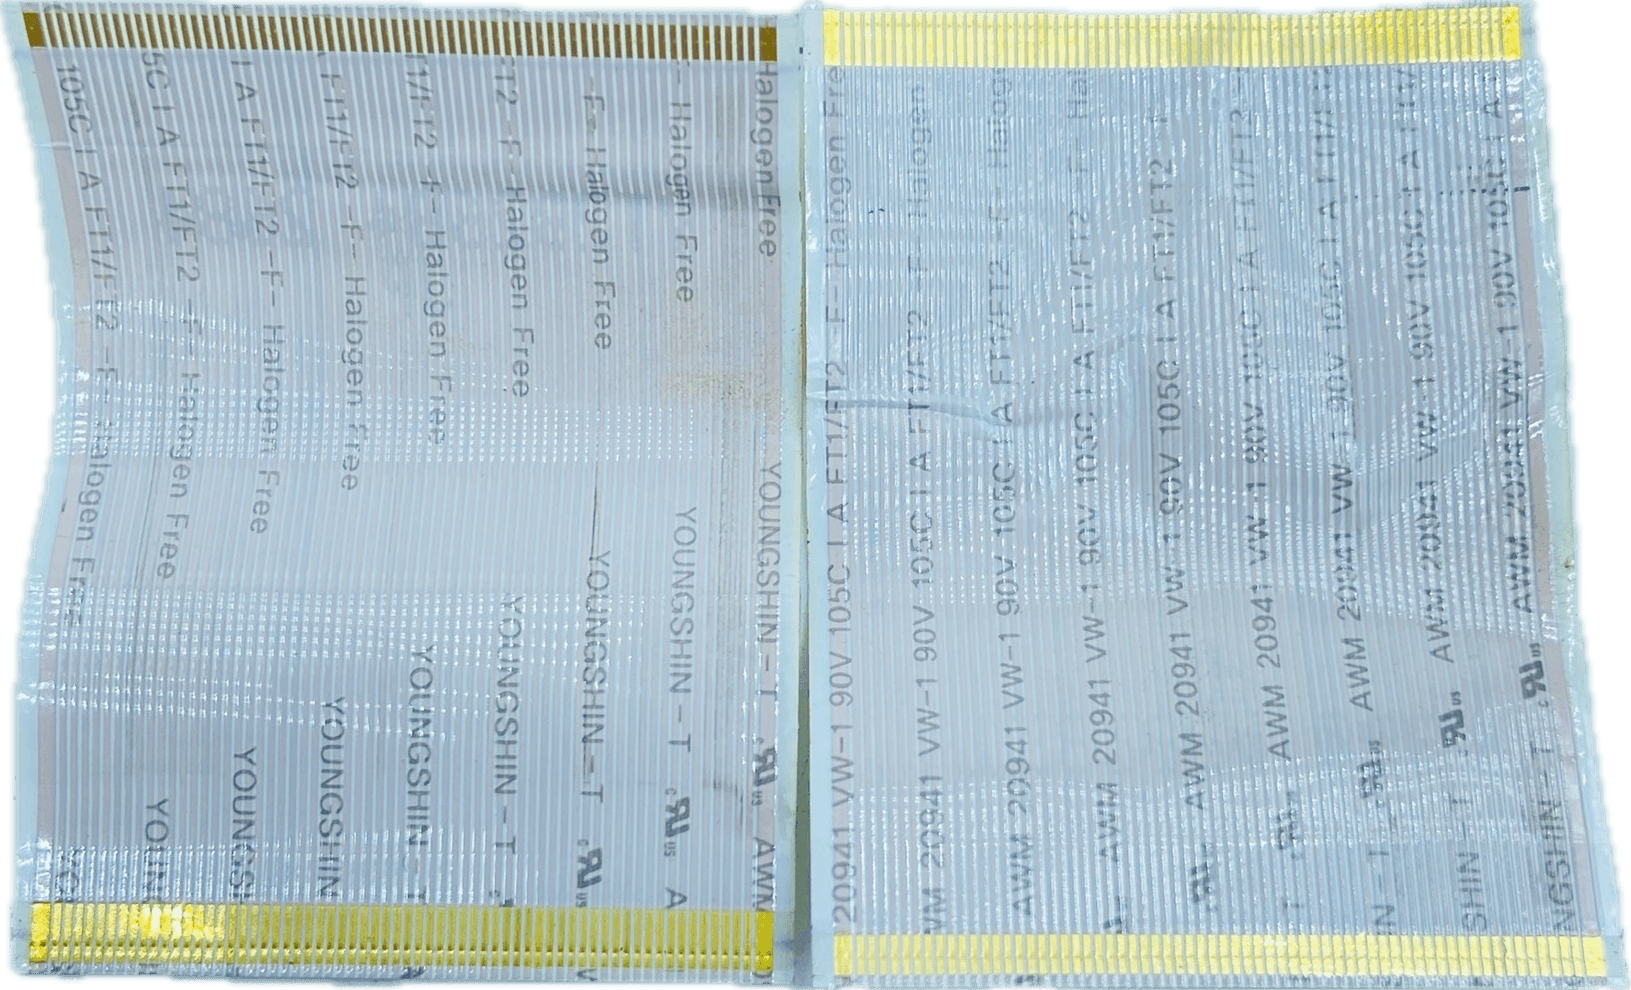 105C I A FT1/FT2 -F- Halogen Free
5C I A FT1/FT2 -F- Halogen Free YOUNG
I A FT1/FT2 -F- Halogen Free YOUNGS
FT1/FT2 -F- Halogen Free YOUNGSHIN
T1/FT2 -F- Halogen Free YOUNGSHIN - T
T2 -F- Halogen Free YOUNGSHIN - T
-F- Halogen Free YOUNGSHIN - T c UR us
- Halogen Free YOUNGSHIN - T c UR us A
Halogen Free YOUNGSHIN - T c UR us AWM
20941 VW-1 90V 105C I A FT1/FT2 -F- Halogen Fre
WM 20941 VW-1 90V 105C I A FT1/FT2 -F- Halogen
AWM 20941 VW-1 90V 105C I A FT1/FT2 -F- Halog
AWM 20941 VW-1 90V 105C I A FT1/FT2 -F- Hal
UR AWM 20941 VW-1 90V 105C I A FT1/FT2
T c UR us AWM 20941 VW-1 90V 105C I A FT1/FT2
N - T c UR us AWM 20941 VW-1 90V 105C I A FT1/
SHIN - T c UR us AWM 20941 VW-1 90V 105C I A FT1/
NGSHIN - T c UR us AWM 20941 VW-1 90V 105C I A